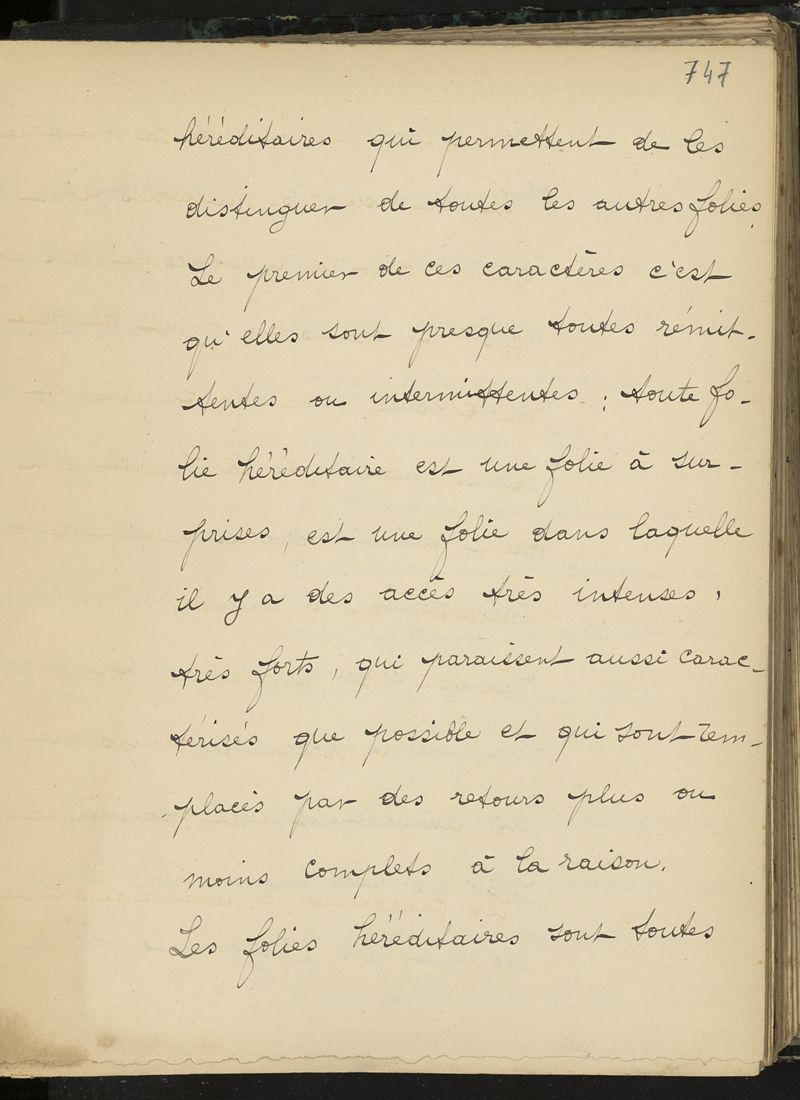 747
héréditaires qui permettent de les
distinguer de toutes les autres folies.
Le premier de ces caractères c'est
qu'elles sont presque toutes rémit-
tentes ou intermittentes ; toute fo-
lie héréditaire est une folie à sur-
prises, est une folie dans laquelle
il y a des accès très intenses,
très forts, qui paraissent aussi carac-
térisés que possible et qui sont rem-
placés par des retours plus ou
moins complets à la raison.
Les folies héréditaires sont toutes